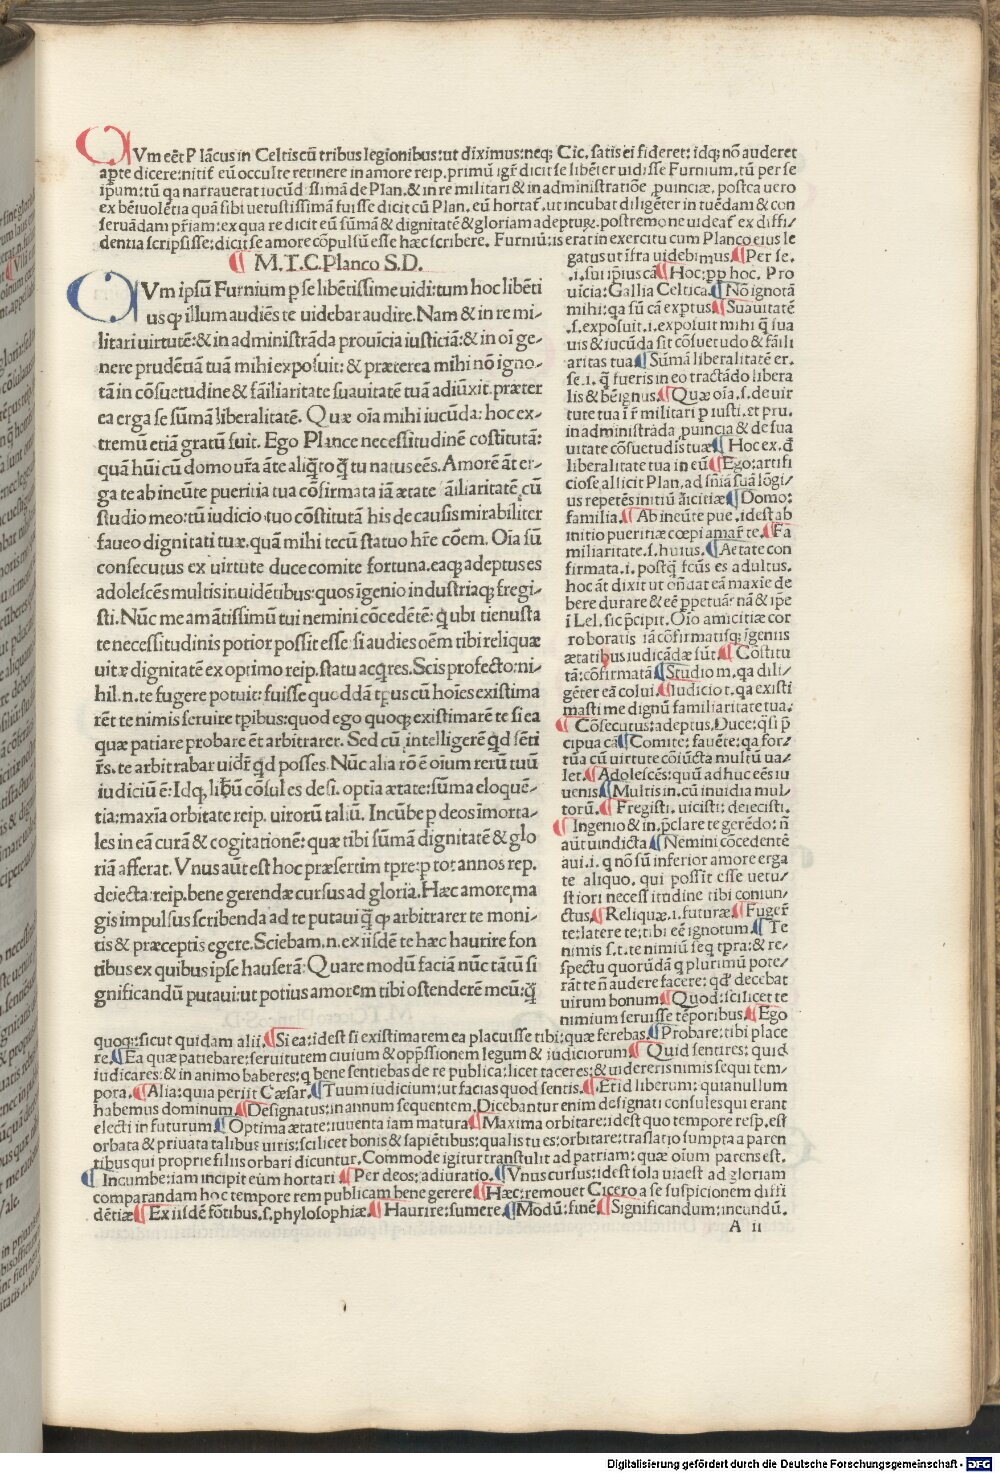 QVm eēt P lācus in Celtis cū tribus legionibus: ut diximus: neq; Cic. satis ei fideret: idq; nō auderet
apte dicere: nitit̄ eū occulte retinere in amore reip. primū igit̄ dicit se libēter uidisse Furnium, tū per se
ipsum: tū qa narrauerat iucūdissimā de Plan. & in re militari & in administratiōe, puinciæ, postea uero
ex bēiuolētia quā sibi uetustissimā fuisse dicit cū Plan. eū hortat̄, ut incubat diligēter in tuēdam & con
seruādam pr̄iam: ex qua re dicit eū sūmā & dignitatē & gloriam adepturū. postremo ne uideat̄ ex diffi/
dentia scripsisse: dicit se amore cōpulsū esse hæc scribere. Furniū: is erat in exercitu cum Planco eius le
gatus ut īfra uidebimus. ¶ Per se.
.i. sui ipsius cā ¶ Hoc: pp hoc. Pro
uicia: Gallia Celtica. ¶ Nō ignotā
mihi: qa sūt cā exptus ¶ Suauitatē
.s. exposuit .i. exposuit mihi q̄ sua
uis & iucūda sit cōsuetudo & fāili
aritas tua ¶ Sūmā liberalitatē er.
se .i. q̄ fueris in eo tractādo libera
lis & bēignus. ¶ Quæ oīa .s. de uir
tute tua ī r̄ militari p iusti. et pru.
in administrāda puincia & de sua
uitate cōsuetudīs tuæ ¶ Hoc ex. d̄
liberalitate tua in eū ¶ Ego: artifi
ciose allicit Plan. ad sn̄iā suā lōgi/
us repetēs initiū āicitiæ ¶ Domo:
familia. ¶ Ab ineūte pue. idest ab
initio pueritiæ cœpi amar̄ te. ¶ Fa
miliaritate .s. huius. ¶ Aetate con
firmata .i. postq̄ fctūs es adultus.
hoc āt dixit ut oñdat eā maxīe de
bere durare & eē ppetuā: nā & ipe
ī Lel. sic pcipit. Oīo amicitiæ cor
roboratis iā cōfirmatisq; īgeniis
ætatibus iudicādæ sūt. ¶ Cōstitu
tā: cōfirmatā ¶ Studio m. qa dili/
gēter eā colui. ¶ Iudicio t. qa existi
masti me dignū familiaritate tua.
¶ Cōsecutus: adeptus. Duce: q̄si p̄
cipua cā ¶ Comite: fauēte: qa for/
tūa cū uirtute cōiūcta multū ua/
let. ¶ Adolescēs: quū adhuc eēs iu
uenis. ¶ Multis in. cū inuidia mul/
torū. ¶ Fregisti. uicisti: deiecisti.
¶ Ingenio & in. pclare te gerēdo: ñ
aūt uindicta ¶ Nemini cōcedentē
aui .i. q nō sū inferior amore erga
te aliquo, qui possit esse uetu/
stiori necessitudine tibi coniun/
ctus. ¶ Reliquæ .i. futuræ ¶ Fuger̄
te: latere te: tibi eē ignotum. ¶ Te
nimis s. t. te nimiū seq tpra: & re/
spectu quorūdā q plurimū pote/
rāt te ñ audere facere: qd̄ decebat
uirum bonum ¶ Quod: scilicet te
nimium seruisse tēporibus. ¶ Ego
¶ M. T. C. Planco S. D.
QVm ipsū Furnium p se libētissime uidi: tum hoc libēti
us qp illum audiēs te uidebar audire. Nam & in re mi/
litari uirtutē: & in administrāda prouicia iusticiā: & in oī ge/
nere prudētiā tuā mihi exposuit: & præterea mihi nō igno/
tā in cōsuetudine & fāiliaritate suauitatē tuā adiūxit. præter
ea erga se sūmā liberalitatē. Quæ oīa mihi iucūda: hoc ex/
tremū etiā gratū fuit. Ego Plance necessitudinē cōstitutā:
quā hūi cū domo ur̄a āte aliq̄to q̄ tu natus eēs. Amorē āt er/
ga te ab ineūte pueritia tua cōfirmata iā ætate āiliaritatē cū
studio meo: tū iudicio tuo cōstitutā his de causis mirabiliter
faueo dignitati tuæ. quā mihi tecū statuo hr̄e cōem. Oīa sū
consecutus ex uirtute duce comite fortuna. eaq; adeptus es
adolescēs multis inuidētibus: quos īgenio industriaq; fregi/
sti. Nūc me amātissimū tui nemini cōcedētē: q̄ ubi tienusta
te necessitudinis potior possit esse: si audies oēm tibi reliquæ
uitæ dignitatē ex optimo reip. statu acqres. Scis profecto: ni/
hil .n. te fugere potuit: fuisse quoddā tpus cū hoīes existima
rēt te nimis seruire tpibus: quod ego quoq; existimarē te si ea
quæ patiare probare ēt arbitrarer. Sed cū intelligerē qd sēti
r̄s. te arbitrabar uidr̄ qd posses. Nūc alia rō ē oium rerū tuū
iudiciū ē: Idq; libū cōsul es desi. optia ætate: sūma eloquē/
tia: maxīa orbitate reip. uirorū taliū. Incūbe p deos īmorta/
les in eā curā & cogitationē: quæ tibi sūmā dignitatē & glo
riā afferat. Vnus aūt est hoc præsertim tpre: p tot annos rep.
deiecta: reip. bene gerendæ cursus ad gloriā. Hæc amore ma
gis impulsus scribenda ad te putaui q̄ qp arbitrarer te moni/
tis & præceptis egere. Sciebam .n. ex iisdē te hæc haurire fon
tibus ex quibus ipse hauserā: Quare modū faciā nūc tātū si
gnificandū putaui: ut potius amorem tibi ostenderē meū: q̄
quoq;: sicut quidam alii. ¶ Si ea: idest si existimarem ea placuisse tibi: quæ ferebas. ¶ Probare: tibi place
re. ¶ Ea quæ patiebare: seruitutem ciuium & opp̄ssionem legum & iudiciorum ¶ Quid sentires: quid
iudicares: & in animo haberes: q bene sentiebas de re publica: licet taceres: & uidereris nimis sequi tem/
pora. ¶ Alia: quia periit Cæsar. ¶ Tuum iudicium: ut facias quod sentis. ¶ Et id liberum: quia nullum
habemus dominum. ¶ Designatus: in annum sequentem. Dicebantur enim designati consules qui erant
electi in futurum ¶ Optima ætate: iuuenta iam matura ¶ Maxima orbitare: idest quo tempore resp. est
orbata & priuata talibus uiris: scilicet bonis & sapiētibus: qualis tu es: orbitare: traslatio sumpta a paren
tibus qui proprie filiis orbari dicuntur. Commode igitur transtulit ad patriam: quæ oium parens est.
¶ Incumbe: iam incipit eum hortari ¶ Per deos: adiuratio. ¶ Vnus cursus: idest sola uia est ad gloriam
comparandam hoc tempore rem publicam bene gerere ¶ Hæc: remouet Cicero a se suspicionem diffi
dētiæ ¶ Ex iisdē fōtibus .s. phylosophiæ. ¶ Haurire: sumere. ¶ Modū: finē ¶ Significandum: incundū.
A ii
Digitalisierung gefördert durch die Deutsche Forschungsgemeinschaft - DFG